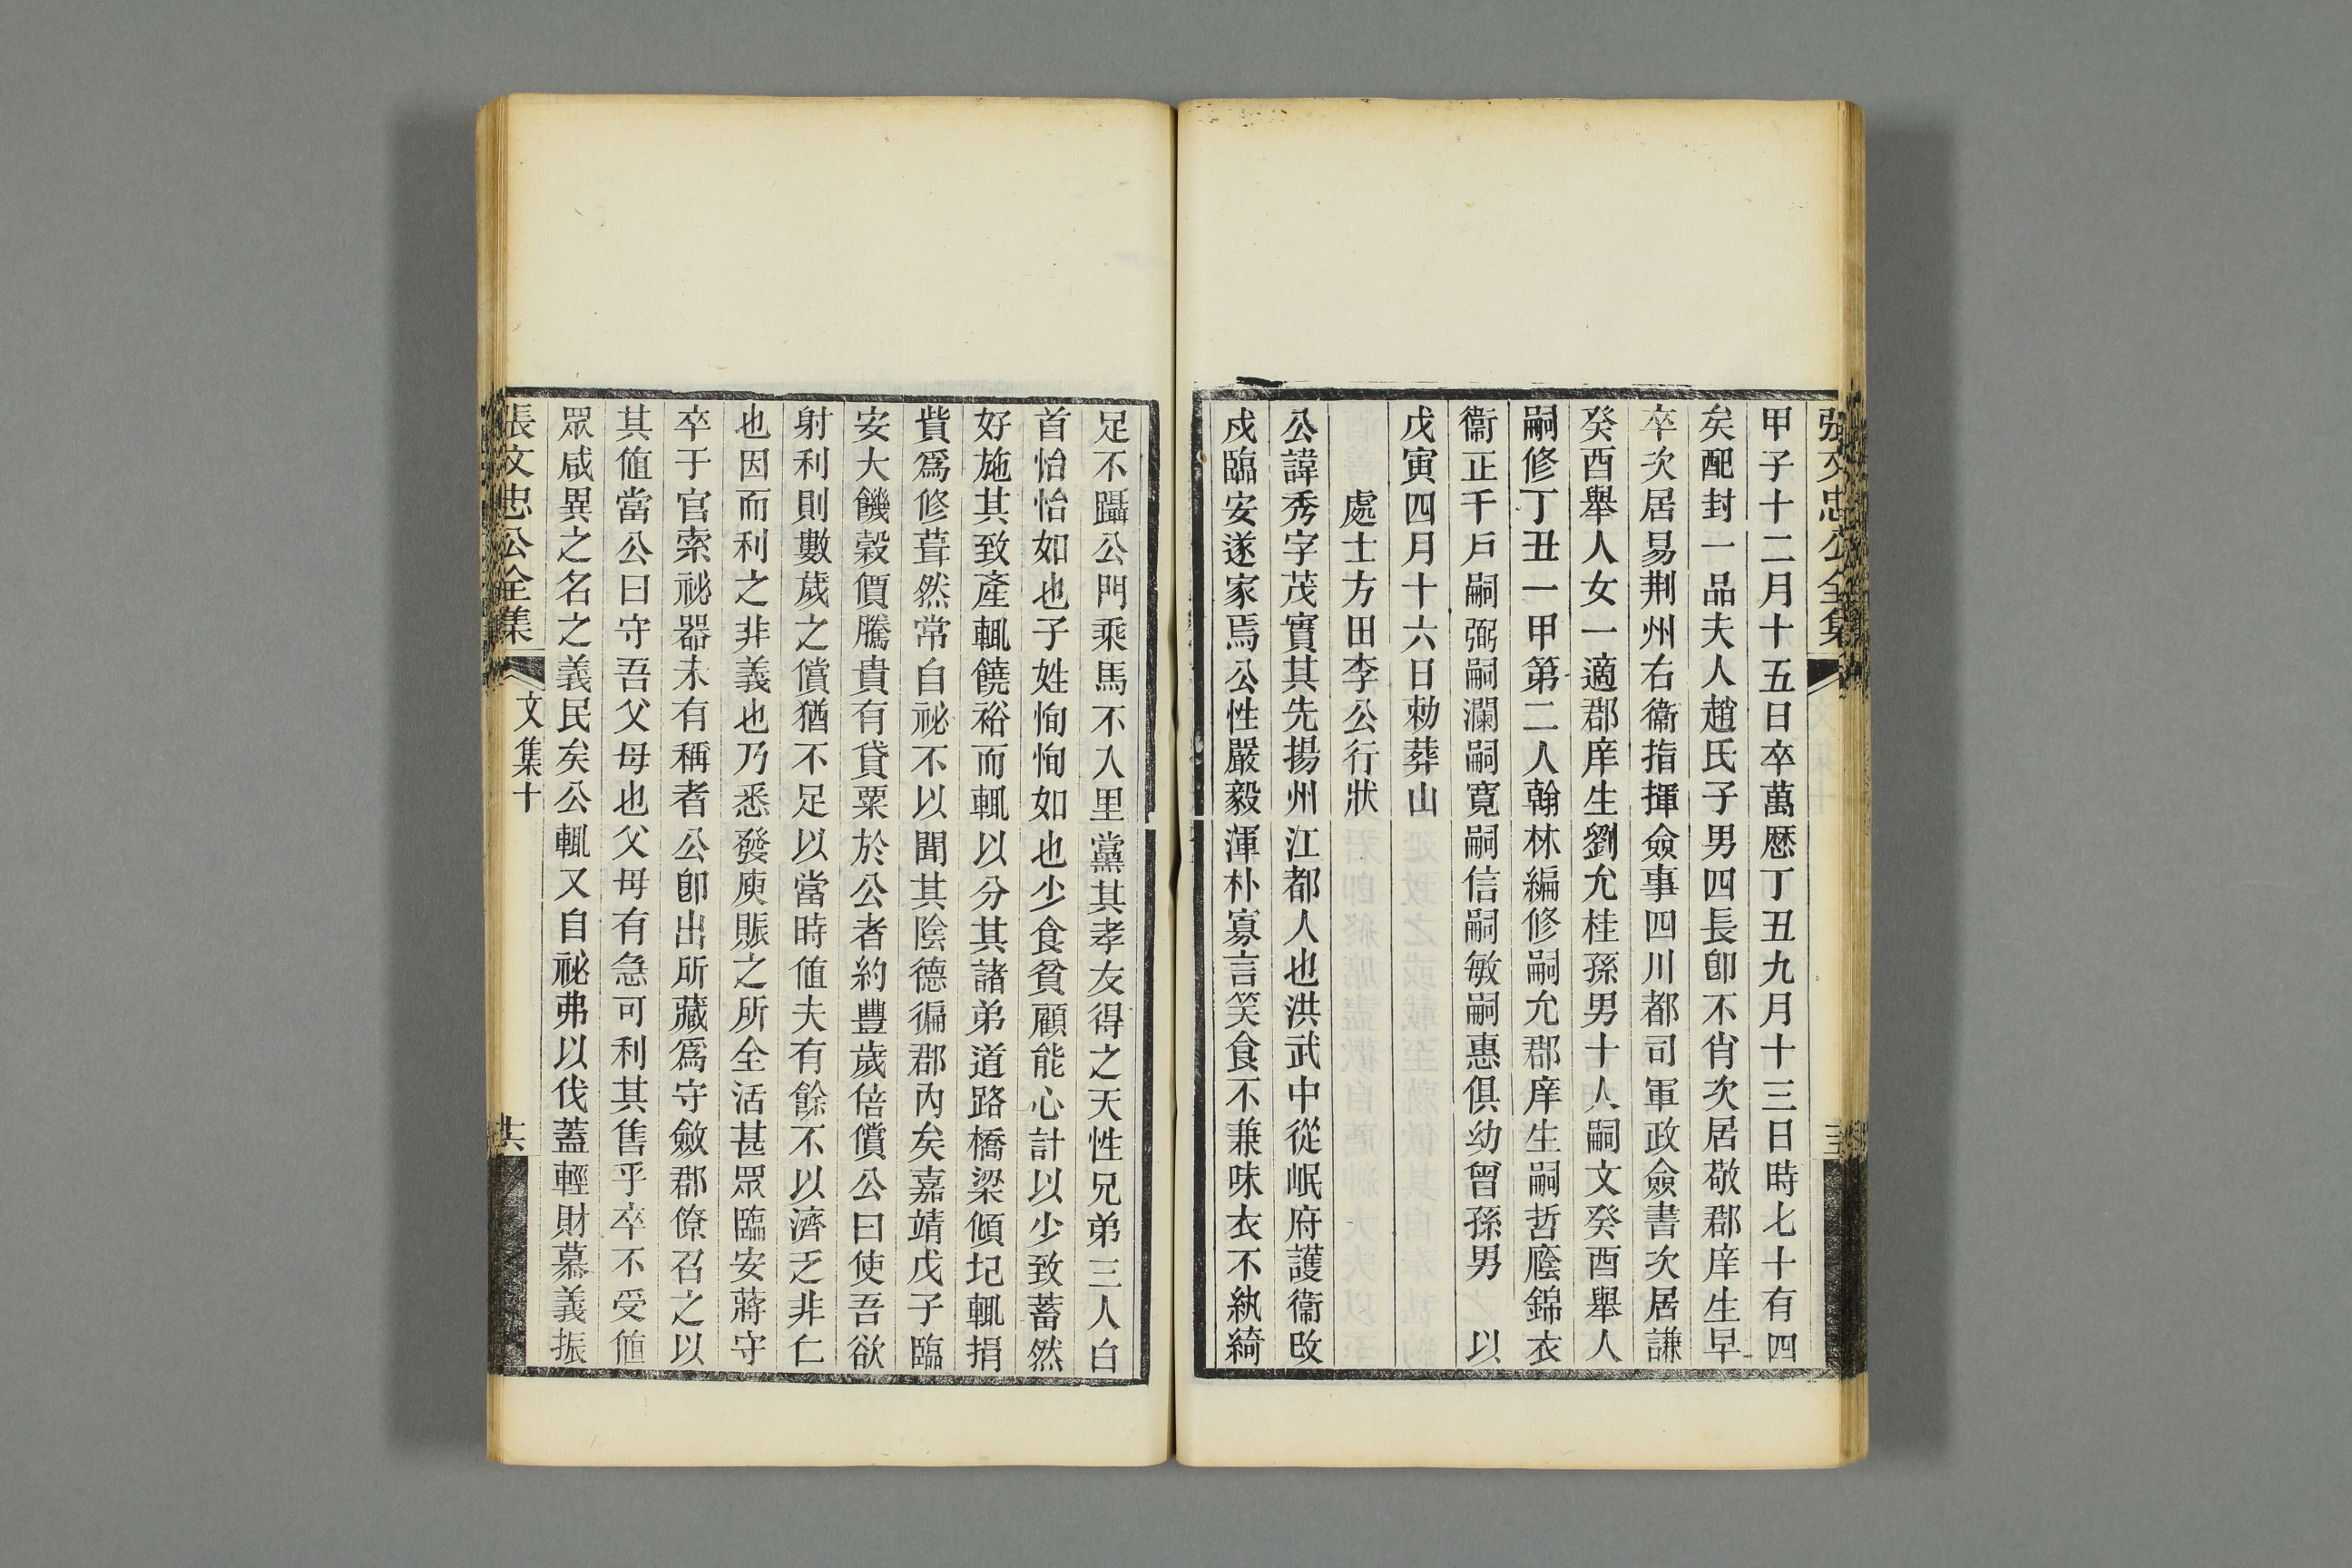 張文忠公全集
甲子十二月十五日卒萬厯丁丑九月十三日時七十有四
矣配封一品夫人趙氏子男四長卽不肖次居敬郡庠生早
卒次居易荆州右衞指揮僉事四川都司軍政僉書次居謙
癸酉舉人女一適郡庠生劉允桂孫男十人嗣文癸酉舉人
嗣修丁丑一甲第二人翰林編修嗣允郡庠生嗣哲廕錦衣
衞正千戶嗣弼嗣瀾嗣寬嗣信嗣敏嗣惠俱幼曾孫男　以
戊寅四月十六日勅葬山
處士方田李公行狀
公諱秀字茂實其先揚州江都人也洪武中從岷府護衞改
戍臨安遂家焉公性嚴毅渾朴寡言笑食不兼味衣不紈綺
足不躡公門乘馬不入里黨其孝友得之天性兄弟三人白
首怡怡如也子姓恂恂如也少食貧顧能心計以少致蓄然
好施其致產輒饒裕而輒以分其諸弟道路橋梁傾圮輒捐
貲爲修葺然常自祕不以聞其陰德徧郡內矣嘉靖戊子臨
安大饑穀價騰貴有貸粟於公者約豐歲倍償公曰使吾欲
射利則數歲之償猶不足以當時値夫有餘不以濟乏非仁
也因而利之非義也乃悉發庾賑之所全活甚眾臨安蔣守
卒于官索祕器未有稱者公卽出所藏爲守斂郡僚召之以
其値當公曰守吾父母也父母有急可利其售乎卒不受値
眾咸異之名之義民矣公輒又自祕弗以伐蓋輕財慕義振
張文忠公全集
文集十
共